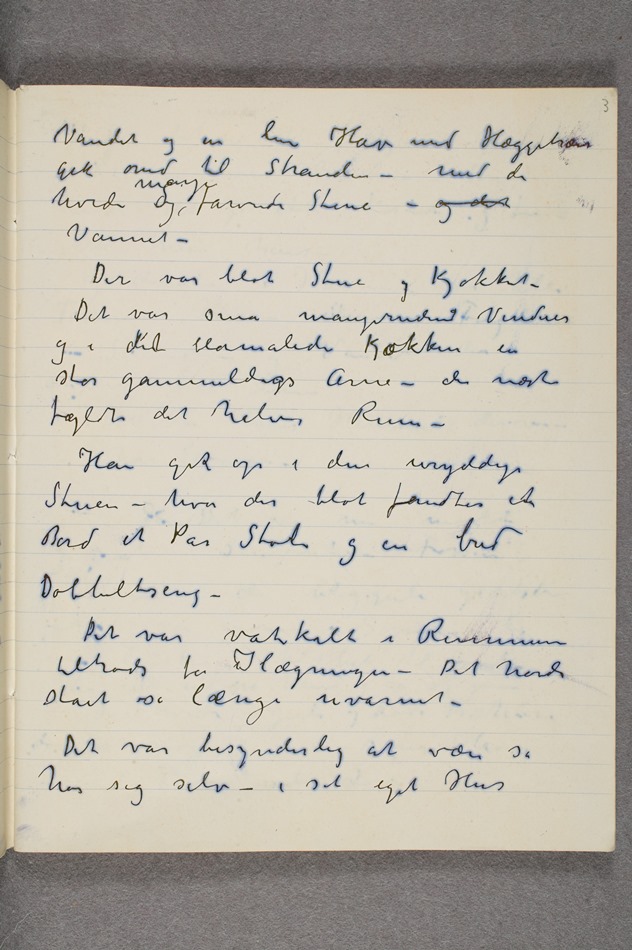 3
Vandet og en liten Have med Hæggetrær
gik ned til Stranden – med de
hvide og mange farvede Stene – og det
Vannet –
Der var blot Stue og Kjøkken –
Det var små mangerudede Vinduer
og i det blåmalede Kjøkken en
stor gammeldags Arne – der næsten
fyldte det halve Rum –
Han gik op i den uryddige
Stuen – hvor der blot fandtes et
Bord et Par Stole og en bred
Dobbeltseng –
Det var våtkalt i Rummene
tiltrods for Ilægningen – Det havde
stået så længe uvarmet –
Det var besynderlig at være så
hos seg selv – i sit eget Hus